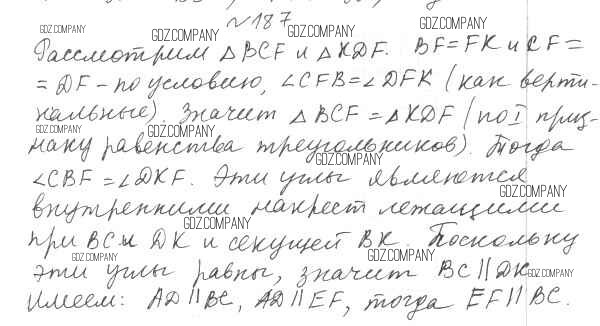 №187
Рассмотрим △BCF и △KDF. BF=FK и CF=
= DF - по условию, ∠CFB=∠DFK (как верти-
кальные). Значит △BCF = △KDF (по I приз-
наку равенства треугольников). Тогда
∠CBF = ∠DKF. Эти углы являются
внутренними накрест лежащими
при BC и DK и секущей BK. Поскольку
эти углы равны, значит BC || DK
Имеем: AD || BC, AD || EF, тогда EF || BC.
GDZ.COMPANY
GDZ.COMPANY
GDZ.COMPANY
GDZ.COMPANY
GDZ.COMPANY
GDZ.COMPANY
GDZ.COMPANY
GDZ.COMPANY
GDZ.COMPANY
GDZ.COMPANY
GDZ.COMPANY
GDZ.COMPANY